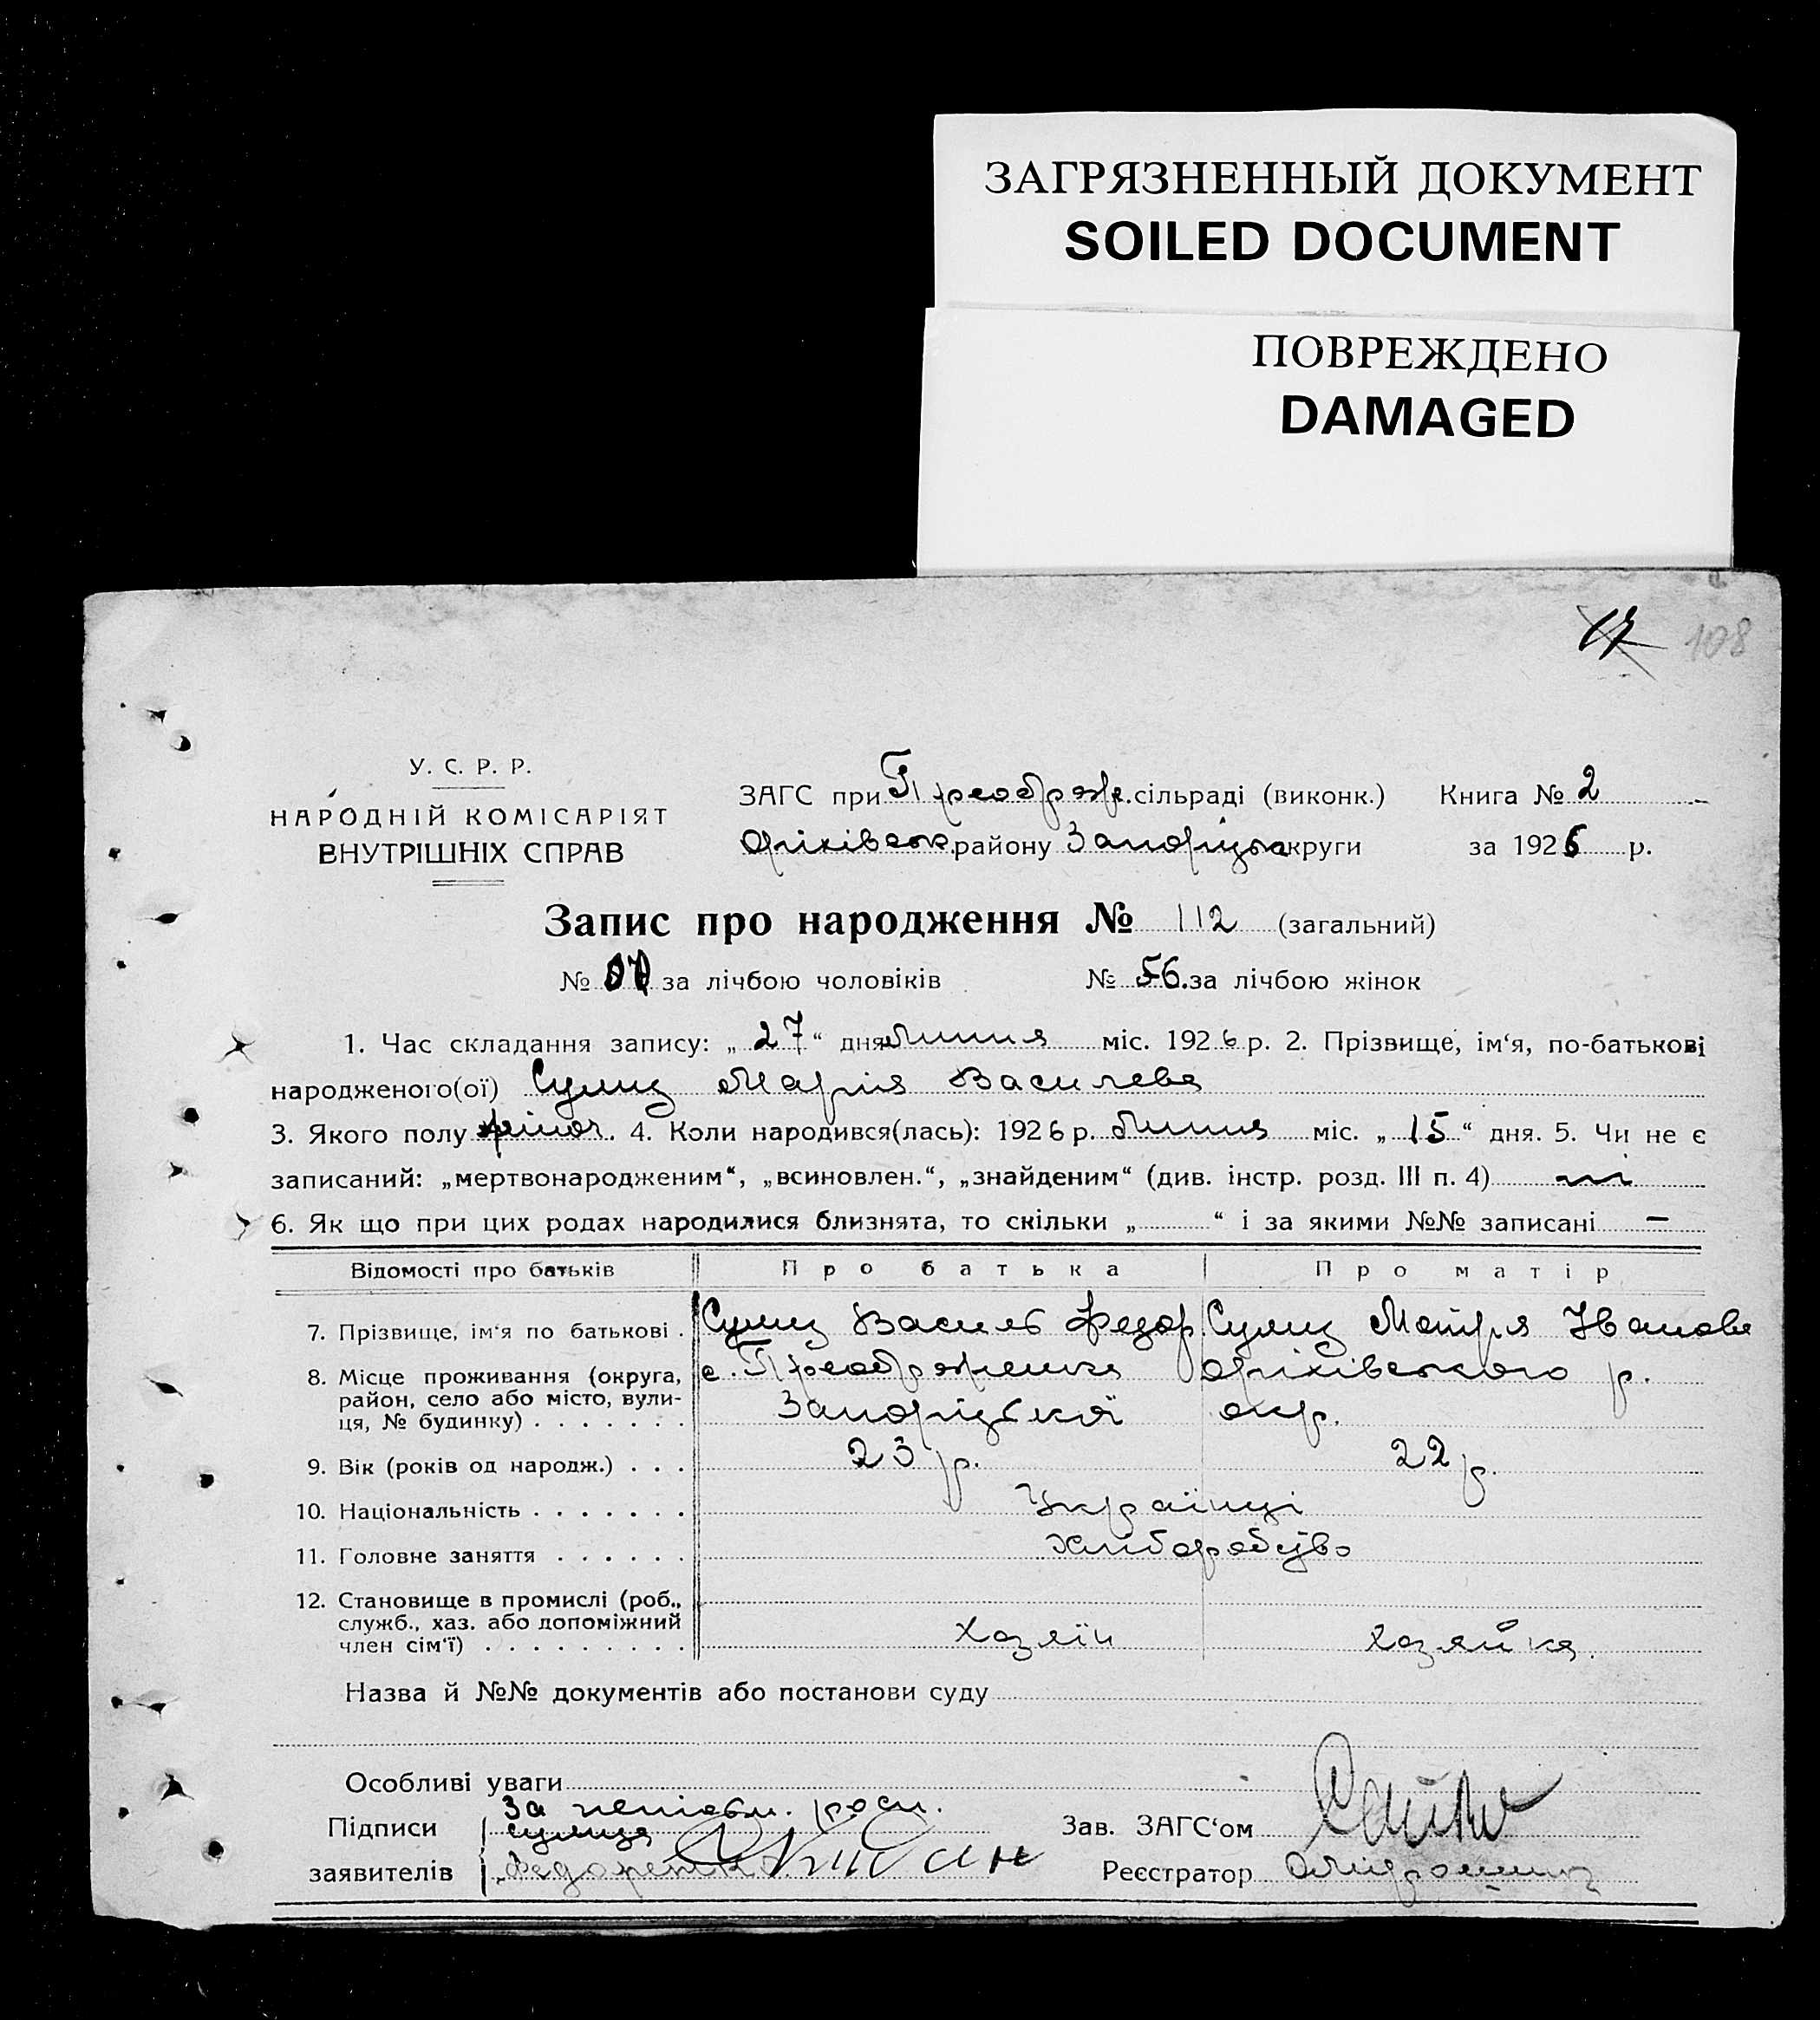 ЗАГРЯЗНЕННЫЙ ДОКУМЕНТ
SOILED DOCUMENT
ПОВРЕЖДЕНО
DAMAGED
108
У. С. Р. Р.
НАРОДНІЙ КОМІСАРІЯТ
ВНУТРІШНІХ СПРАВ
ЗАГС при Преображ. сільраді (виконк.) Книга № 2
Оріхівськ. району Запоріцьк округи за 1926 р.
Запис про народження № 112 (загальний)
№ за лічбою чоловіків № 56. за лічбою жінок
1. Час складання запису: „27“ дня липня міс. 1926 р. 2. Прізвище, ім‘я, по-батькові
народженого(ої) Сулиц Марія Василева
3. Якого полу жіноч. 4. Коли народився(лась): 1926 р. липня міс. „15“ дня. 5. Чи не є
записаний: „мертвонародженим“, „всиновлен.“, „знайденим“ (див. інстр. розд. III п. 4) ні
6. Як що при цих родах народилися близнята, то скільки „ “ і за якими №№ записані —
Відомості про батьків Про батька Про матір
7. Прізвище, ім‘я по батькові . Сулиц Василь Федор. Сулиц Мотря Іванова
8. Місце проживання (округа, с. Преображенка Оріхівського р.
район, село або місто, вули-
ця, № будинку) . . . . . . . Запоріцької окр.
9. Вік (років од народж.) . . . 23 р. 22 р.
10. Національність . . . . . . . Українці
11. Головне заняття . . . . . . Хліборобство
12. Становище в промислі (роб.,
служб., хаз. або допоміжний
член сім‘ї) . . . . . . . . . Хозяїн Хозяйка.
Назва й №№ документів або постанови суду
Особливі уваги
За неписьм. росп.
Підписи Сулица Зав. ЗАГС‘ом
заявителів Реєстратор